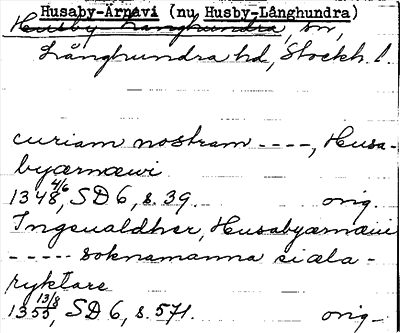 Husaby-Ärnavi (nu Husby-Långhundra)
Husby Långhundra, sn,
Långhundra hd, Stockh. l.
curiam nostram ----, Husa-
byærnæwi
1348 4/6, SD 6, s. 39. orig.
Ingeualdher, Husabyærnæui
----- soknamanna siæla-
ryktare
1355 13/8, SD 6, s. 571. orig.